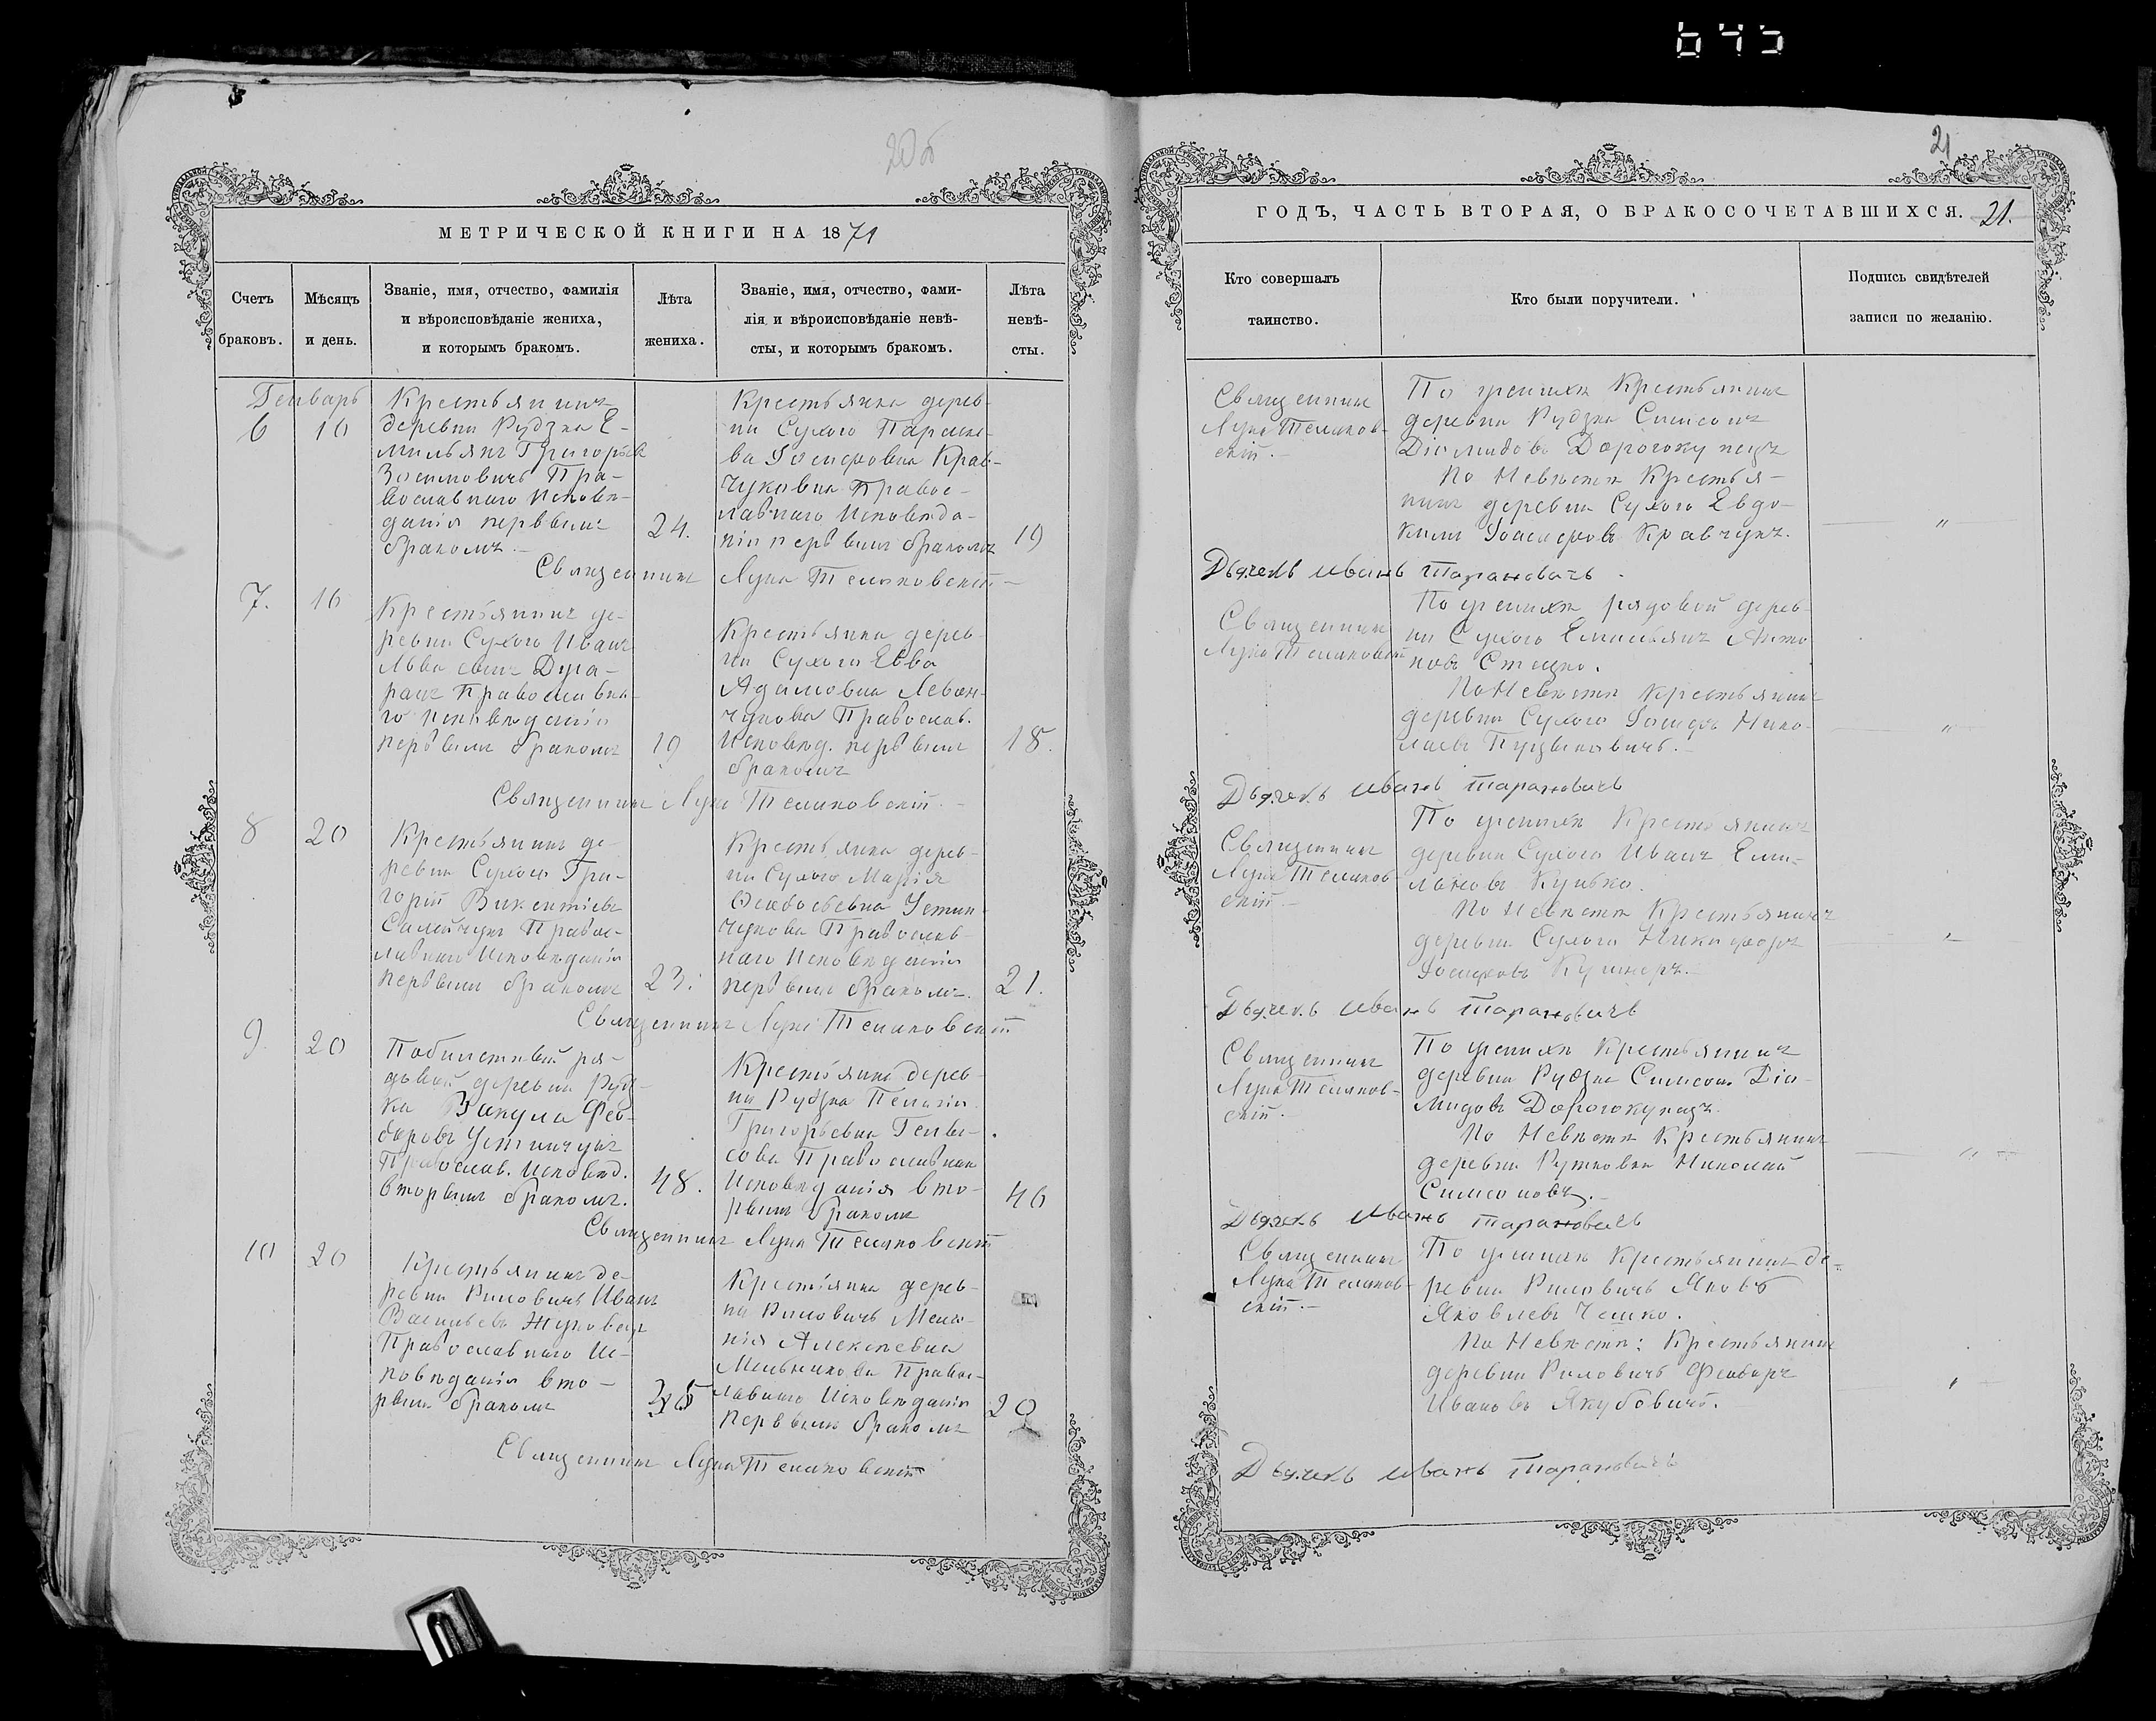 643
20об
МЕТРИЧЕСКОЙ КНИГИ НА 1871
Счетъ
браковъ.
Мѣсяцъ
и день.
Званіе, имя, отчество, фамилія
и вѣроисповѣданіе жениха,
и которымъ бракомъ.
Лѣта
жениха.
Званіе, имя, отчество, фами-
лія и вѣроисповѣданіе невѣ-
сты, и которымъ бракомъ.
Лѣта
невѣ-
сты.
Генварь
6
10
Крестьянинъ
деревни Рудзка Е-
мильянъ Григорьев
Зосимовичъ Пра-
вославнаго исповѣ-
данія первымъ
бракомъ.
24.
Крестьянка дерев-
ни Сухого Параске-
ва Іосифовна Крав-
чукова Правос-
лавнаго исповѣда-
нія первымъ бракомъ
19
Священникъ Лука Теляковскій
7.
16
Крестьянинъ де-
ревни Сухого Иванъ
православна-
го исповѣданія
первымъ бракомъ
19
Крестьянка дерев-
ни Сухого Евва
Адамовна Леван-
чукова Православ.
Исповѣд. первымъ
бракомъ
18.
Священникъ Лука Теляковскій.
8
20
Крестьянинъ де-
ревни Сухого Гри-
горій Викентіевъ
Правос-
лавнаго исповѣданія
первымъ бракомъ
23.
Крестьянка дерев-
ни Сухого Марія
Устин-
чукова Православ-
наго исповѣданія
первымъ бракомъ.
21.
Священникъ Лука Теляковскій
9.
20
ря-
довой деревни Рудз-
ка Викула Фео-
доровъ Устинчукъ
Православ. исповѣд.
вторымъ бракомъ.
48.
Крестьянка дерев-
ни Рудзка Пелагія
Григорьевна
Православнаго
Исповѣданія вто-
рымъ бракомъ
46
Священникъ Лука Теляковскій
10
20
Крестьянинъ де-
ревни Риловичъ Иванъ
Васильевъ Жуковецъ
Православнаго Ис-
повѣданія вто-
рымъ бракомъ
Крестьянка дерев-
ни Риловичъ Мела-
нія Алексѣевна
Мельникова Правос-
лавнаго исповѣданія
первымъ бракомъ
20
Священникъ Лука Теляковскій
21
ГОДЪ, ЧАСТЬ ВТОРАЯ, О БРАКОСОЧЕТАВШИХСЯ.
21.
Кто совершалъ
таинство.
Кто были поручители.
Подпись свидѣтелей
записи по желанію.
Священникъ
Лука Теляков-
скій.
По женихѣ Крестьянинъ
деревни Рудзка Симеонъ
Діомидовъ Дорогокупецъ
По Невѣстѣ Крестья-
нинъ деревни Сухого Евдо-
кимъ Іосифовъ Кравчукъ.
Дьячекъ Иванъ Тарановичъ.
Священникъ
Лука Теляковскій
По женихѣ рядовой дерев-
ни Сухого Емильянъ Анто-
новъ Стецко.
По Невѣстѣ Крестьянинъ
деревни Сухого Іосифъ Нико-
лаевъ Пуцыковичъ.
Дьячекъ Иванъ Тарановичъ
Священникъ
Лука Теляков-
скій.
По женихѣ Крестьянинъ
деревни Сухого Иванъ Еми-
ляновъ Кулько.
По Невѣстѣ Крестьянинъ
деревни Сухого Никифоръ
Іосифовъ Кушнеръ.
Дьячекъ Иванъ Тарановичъ
Священникъ
Лука Теляков-
скій.
По женихѣ Крестьянинъ
деревни Рудзка Симеонъ Діо-
мидовъ Дорогокупецъ
По Невѣстѣ Крестьянинъ
деревни Рутковка Николай
Симеоновъ.
Дьячекъ Иванъ Тарановичъ
Священникъ
Лука Теляков-
скій.
По женихѣ Крестьянинъ де-
ревни Риловичъ Яковъ
Яковлевъ Чешко.
По Невѣстѣ: Крестьянинъ
деревни Риловичъ Феодоръ
Ивановъ Якубовичъ.
Дьячекъ Иванъ Тарановичъ